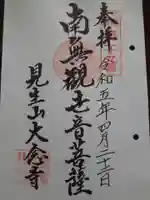 奉拝 令和五年四月二十二日
南無觀世音菩薩
見生山大念寺